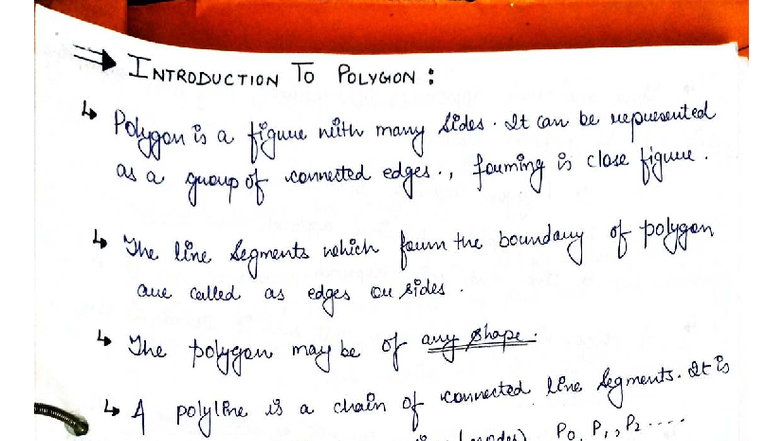 ⇒ INTRODUCTION TO POLYGON :
↳ Polygon is a figure with many sides. It can be represented
as a group of connected edges., forming is close figure.
↳ The line segments which form the boundary of polygon
are called as edges or sides.
↳ The polygon may be of any shape.
↳ A polyline is a chain of connected line segments. It is
P0, P1, P2 ....